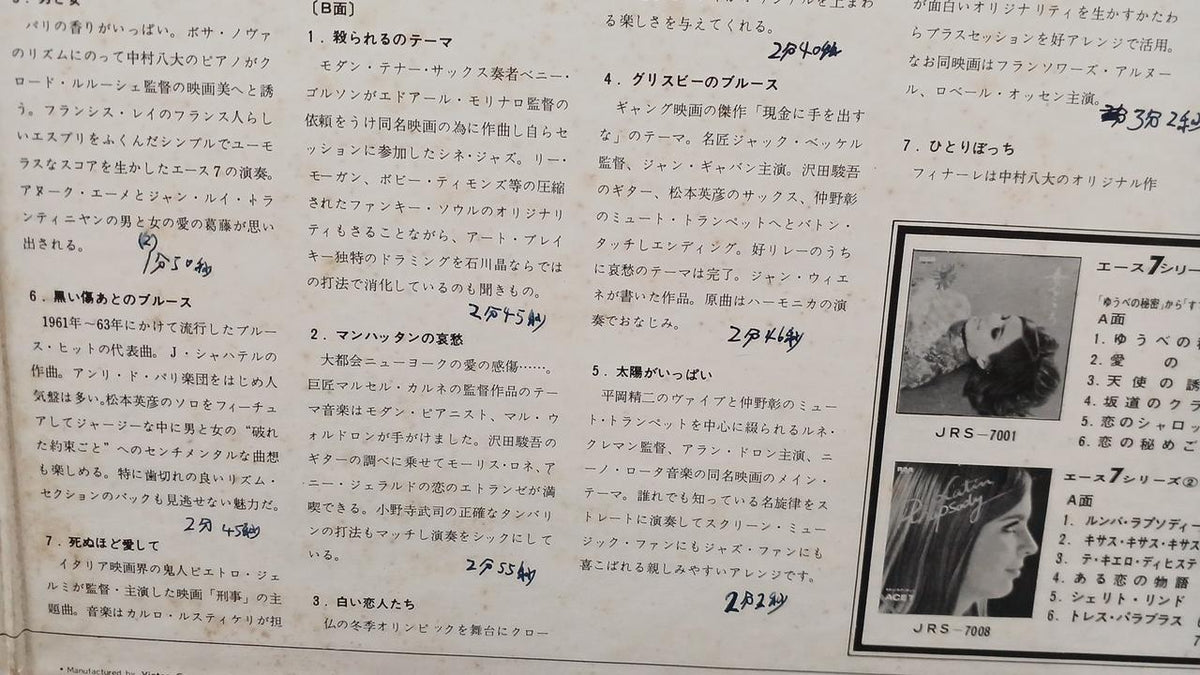 5．男と女
パリの香りがいっぱい。ボサ・ノヴァ
のリズムにのって中村八大のピアノがク
ロード・ルルーシェ監督の映画美へと誘
う。フランシス・レイのフランス人らし
いエスプリをふくんだシンプルでユーモ
ラスなスコアを生かしたエース7の演奏。
アヌーク・エーメとジャン・ルイ・トラ
ンティニヤンの男と女の愛の葛藤が思い
出される。
(2)
1分50秒
6．黒い傷あとのブルース
1961年～63年にかけて流行したブルー
ス・ヒットの代表曲。J・シャハテルの
作曲。アンリ・ド・パリ楽団をはじめ人
気盤は多い。松本英彦のソロをフィーチュ
アしてジャージーな中に男と女の“破れ
た約束ごと”へのセンチメンタルな曲想
も楽しめる。特に歯切れの良いリズム・
セクションのバックも見逃せない魅力だ。
2分45秒
7．死ぬほど愛して
イタリア映画界の鬼人ピエトロ・ジェ
ルミが監督・主演した映画「刑事」の主
題曲。音楽はカルロ・ルスティケリが担
• Manufactured by Victor
〔B面〕
1．殺られるのテーマ
モダン・テナー・サックス奏者ベニー・
ゴルソンがエドアール・モリナロ監督の
依頼をうけ同名映画の為に作曲し自らセ
ッションに参加したシネ・ジャズ。リー・
モーガン、ボビー・ティモンズ等の圧縮
されたファンキー・ソウルのオリジナリ
ティもさることながら、アート・ブレイ
キー独特のドラミングを石川晶ならでは
の打法で消化しているのも聞きもの。
2分45秒
2．マンハッタンの哀愁
大都会ニューヨークの愛の感傷……。
巨匠マルセル・カルネの監督作品のテー
マ音楽はモダン・ピアニスト、マル・ウ
ォルドロンが手がけました。沢田駿吾の
ギターの調べに乗せてモーリス・ロネ、ア
ニー・ジェラルドの恋のエトランゼが満
喫できる。小野寺武司の正確なタンバリ
ンの打法もマッチし演奏をシックにして
いる。
2分55秒
3．白い恋人たち
仏の冬季オリンピックを舞台にクロー
る楽しさを与えてくれる。
2分40秒
4．グリスビーのブルース
ギャング映画の傑作「現金に手を出す
な」のテーマ。名匠ジャック・ベッケル
監督、ジャン・ギャバン主演。沢田駿吾
のギター、松本英彦のサックス、仲野彰
のミュート・トランペットへとバトン・
タッチしエンディング。好リレーのうち
に哀愁のテーマは完了。ジャン・ウィエ
ネが書いた作品。原曲はハーモニカの演
奏でおなじみ。
2分46秒
5．太陽がいっぱい
平岡精二のヴァイブと仲野彰のミュー
ト・トランペットを中心に綴られるルネ・
クレマン監督、アラン・ドロン主演、ニ
ーノ・ロータ音楽の同名映画のメイン・
テーマ。誰れでも知っている名旋律をス
トレートに演奏してスクリーン・ミュー
ジック・ファンにもジャズ・ファンにも
喜こばれる親しみやすいアレンジです。
2分2秒
が面白いオリジナリティを生かすかたわ
らブラスセッションを好アレンジで活用。
なお同映画はフランソワーズ・アルヌー
ル、ロベール・オッセン主演。
3分2秒
7．ひとりぼっち
フィナーレは中村八大のオリジナル作
エース7シリー
「ゆうべの秘密」から「す
A面
1．ゆうべの
2．愛の
3．天使の誘
4．坂道のクラ
5．恋のシャロッ
6．恋の秘めご
JRS-7001
Latin
Rhapsody
JRS-7008
エース7シリーズ②
A面
1．ルンバ・ラプソディー
2．キサス・キサス・キサス
3．テ・キエロ・ディヒステ
4．ある恋の物語
5．シェリト・リンド
6．トレス・パラブラス